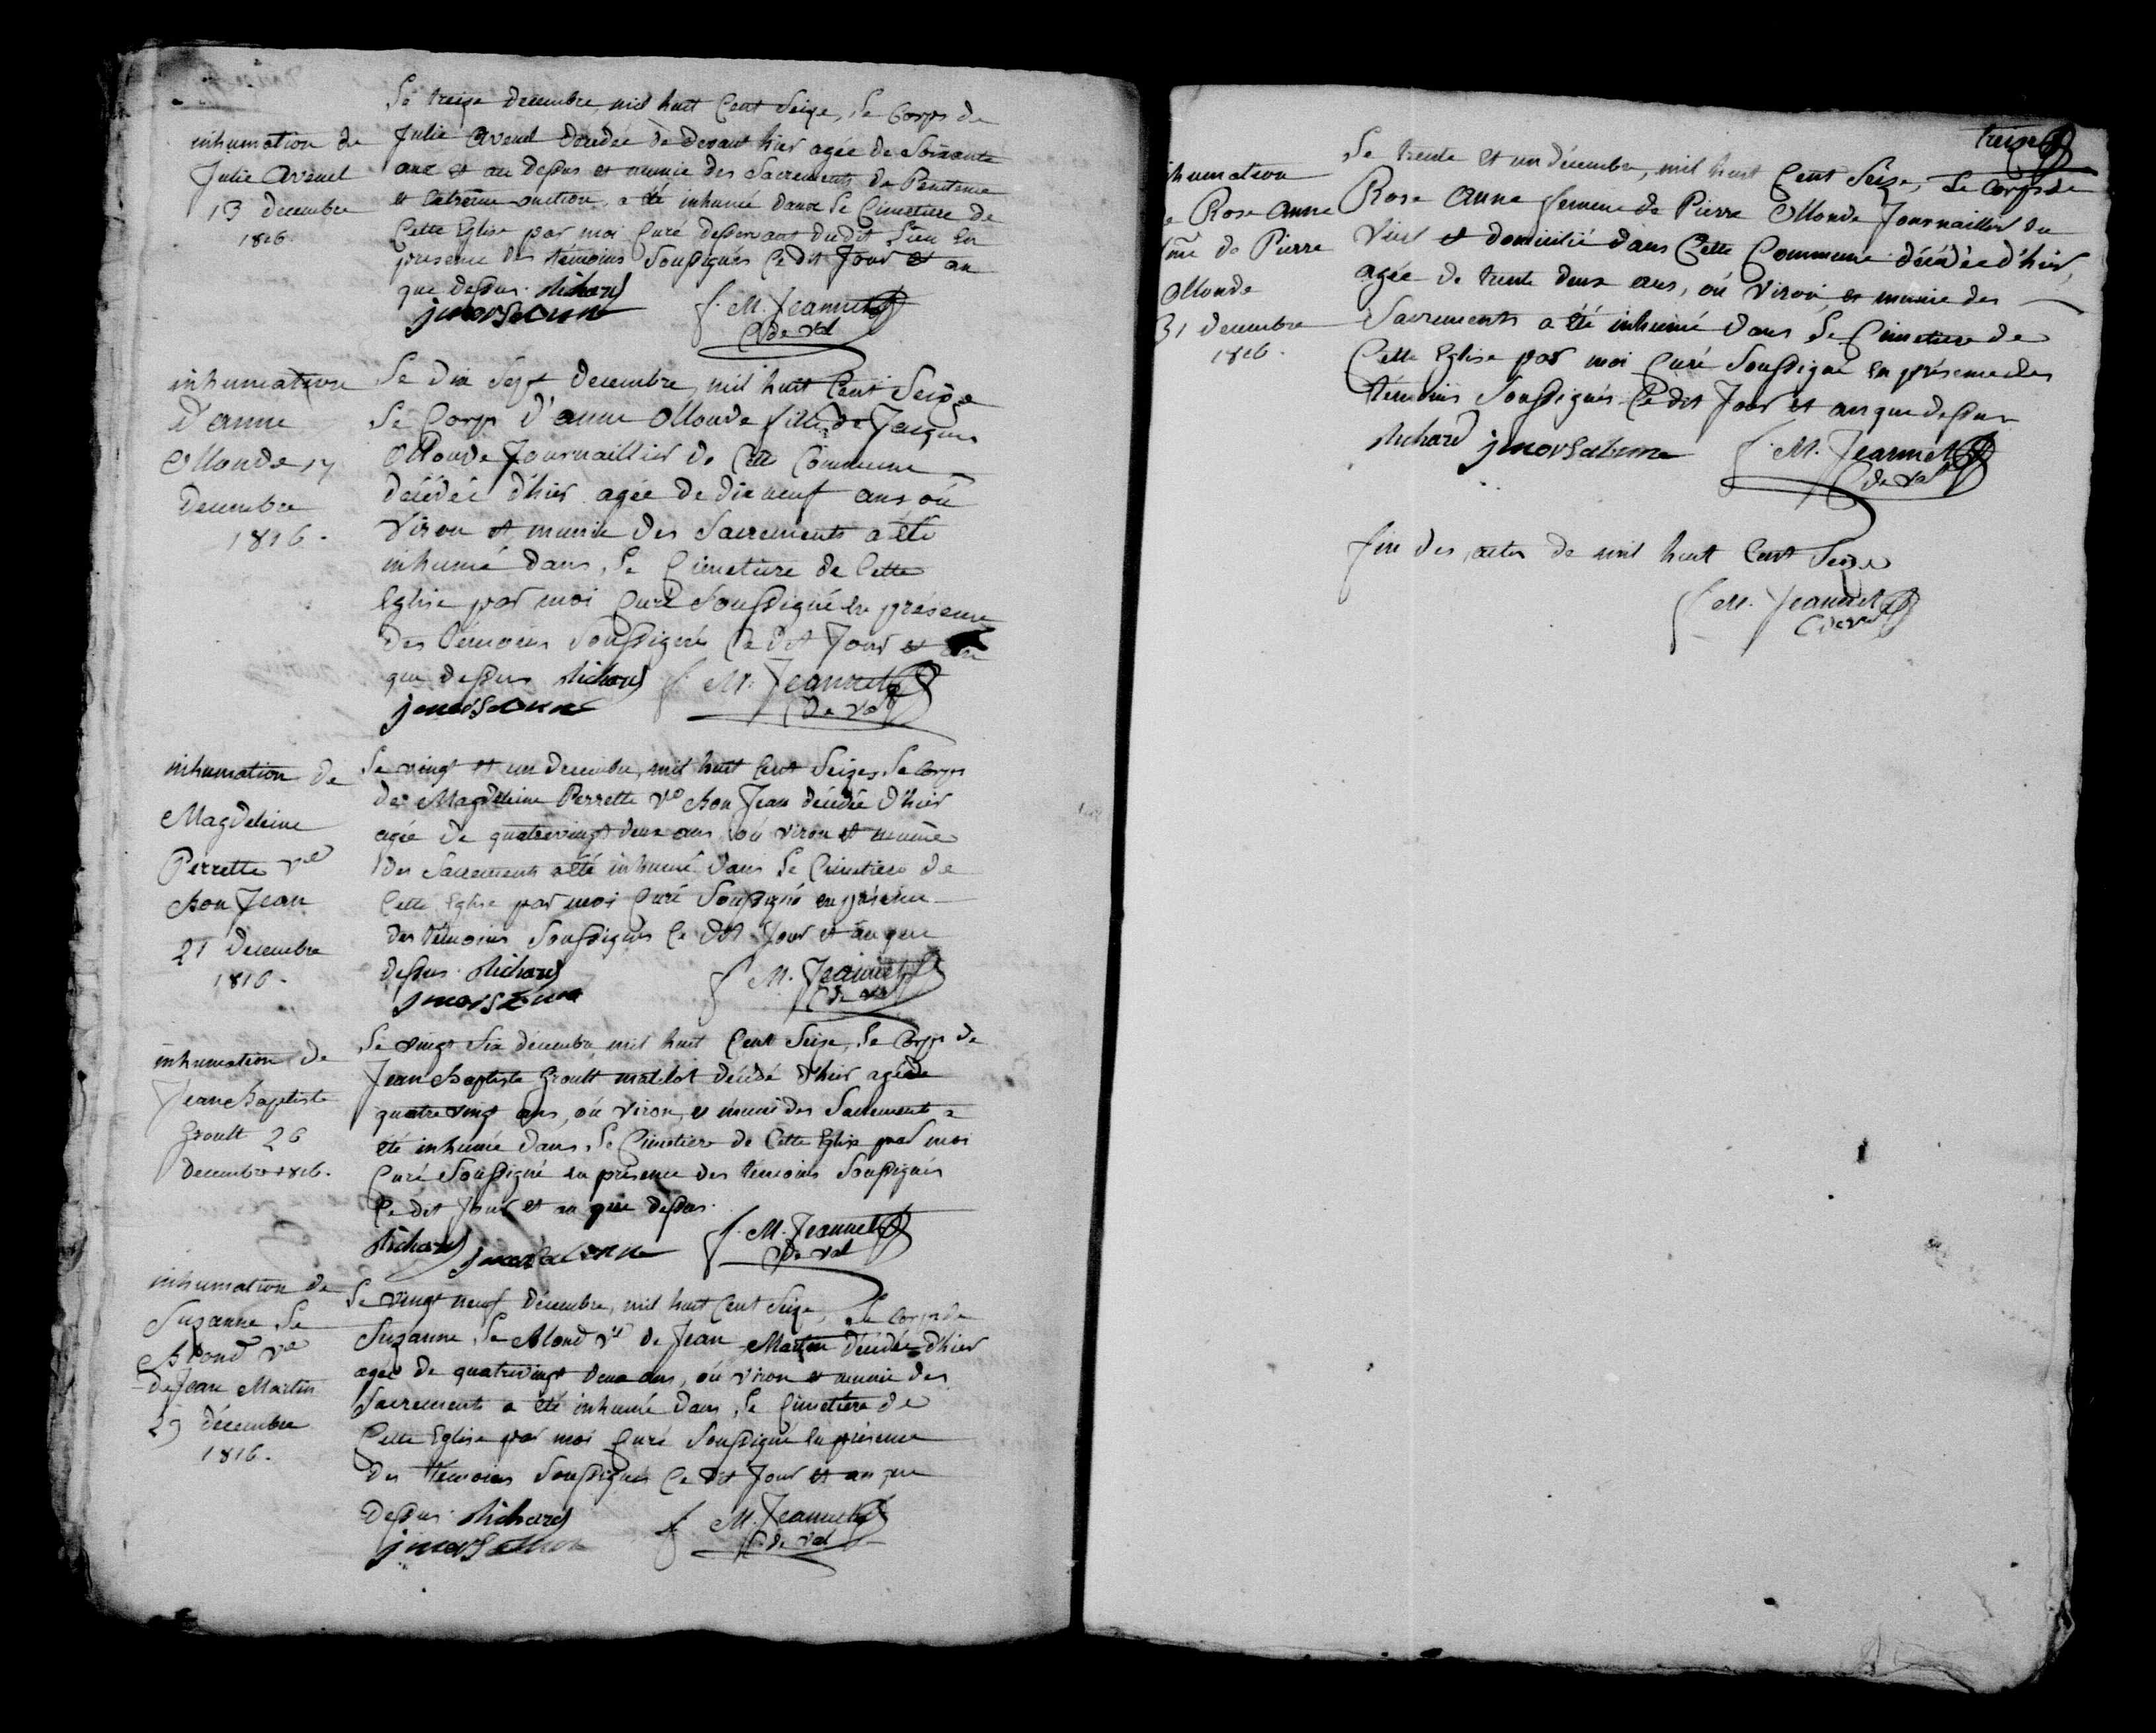 inhumation de
Julie Avenel
13 decembre
1816
Le treize decembre, mil huit Cent Seize, Le Corps de
Julie Avenel décédée de devant hier agée de Soixante
ans et au dessus et munie des Sacrements de Penitence
et extreme onction, a été inhumée dans Le Cimetiere de
Cette Eglise par moi Curé desservant dudit Lieu en
presence des témoins Soussignés Ce dit Jour et an
que dessus. Richard
f. M. Jeannet
C de Val
inhumation
d'anne
Ollonde 17
Decembre
1816.
Le dix Sept decembre, mil huit Cent Seize
Le Corps d'anne Ollonde fille de Jacques
Ollonde Journaillier de Cette Commune
décédée d'hier agée de dix neuf ans où
viron et munie des Sacrements a été
inhumé dans Le Cimetiere de Cette
Eglise par moi Curé Soussigné en présence
des témoins Soussignés Ce dit Jour et an
que dessus Richard
f. M. Jeannet
C de Val
inhumation de
Magdeleine
Perrette ve
Bon Jean
21 Decembre
1816.
Le vingt et un decembre, mil huit Cent Seize, Le Corps
de Magdeleine Perrette ve Bon Jean décédée d'hier
agée de quatrevingt deux ans où viron et munie
des Sacrements a été inhumé dans Le Cimetiere de
Cette Eglise par moi Curé Soussigné en présence
des témoins Soussignés Ce dit Jour et an que
dessus. Richard
f M. Jeannet
C de Val
inhumation de
Jean Baptiste
Groult 26
decembre 1816.
Le vingt Six décembre mil huit Cent Seize, Le Corps de
Jean Baptiste Groult matelot décédé d'hier agé de
quatre vingt ans, où viron, et muni des Sacrements a
été inhumée dans Le Cimetiere de Cette Eglise par moi
Curé Soussigné en présence des témoins Soussignés
Ce dit Jour et an que dessus.
Richard
f. M. Jeannet
C de Val
inhumation de
Suzanne Le
Blond ve
de Jean Martin
29 décembre
1816.
Le vingt neuf Décembre, mil huit Cent Seize, Le Corps de
Suzanne Le Blond ve de Jean Martin décédée d'hier
agée de quatrevingt deux ans, où viron et munie des
Sacrements a été inhumé dans Le Cimetière de
Cette Eglise par moi Curé Soussigné en présence
des témoins Soussignés Ce dit Jour et an que
dessus. Richard
f M. Jeannet
C de Val
treize
humation
e Rose Anne
fme de Pierre
Ollonde
31 decembre
1816.
Le trente et un décembre, mil huit Cent Seize, Le Corps de
Rose Anne femme de Pierre Ollonde Journaillier du
et domicilié dans Cette Commune décédée d'hier,
agée de trente deux ans, où viron, et munie des
Sacrements a été inhumé dans Le Cimetiere de
Cette Eglise par moi Curé Soussigné en présence des
témoins Soussignés Ce dit Jour et an que dessus
Richard
f. M. Jeannet
C de Val
fin des actes de mil huit Cent Seize
f M. Jeannet
C de Val